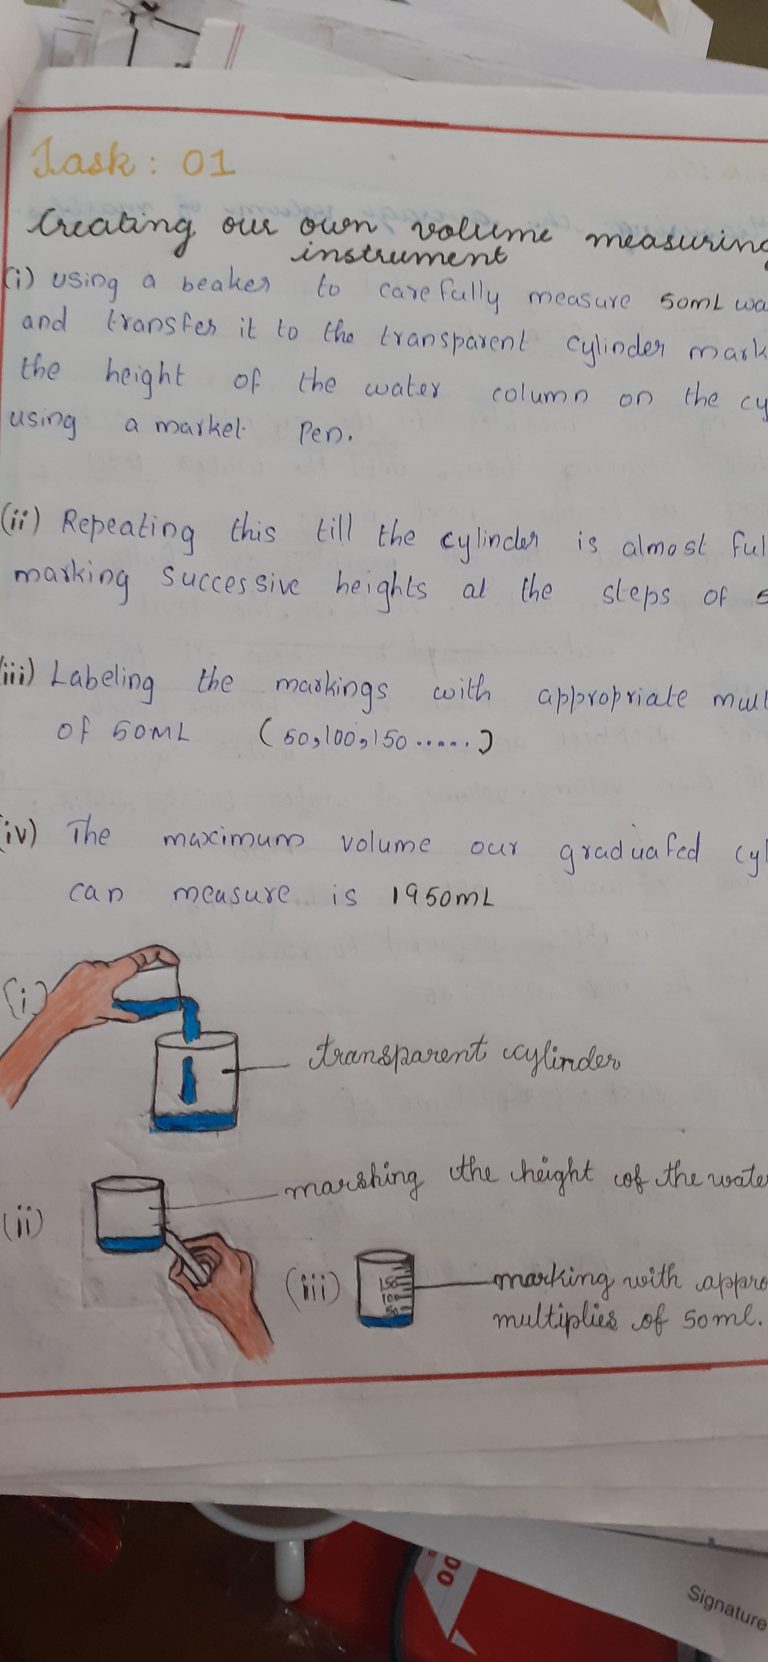 Task: 01
Creating our own volume measuring
instrument
(i) using a beaker to carefully measure 50mL wa
and transfer it to the transparent cylinder mark
the height of the water column on the cy
using a marker Pen.
(ii) Repeating this till the cylinder is almost ful
marking successive heights at the steps of 5
(iii) Labeling the markings with appropriate mul
of 50mL (50,100,150......)
(iv) The maximum volume our graduated cyl
can measure is 1950mL
(i)
transparent cylinder
marshing the height of the wate
(ii)
(iii)
150
100
50
marking with appro
multiplies of 50ml.
00
Signature